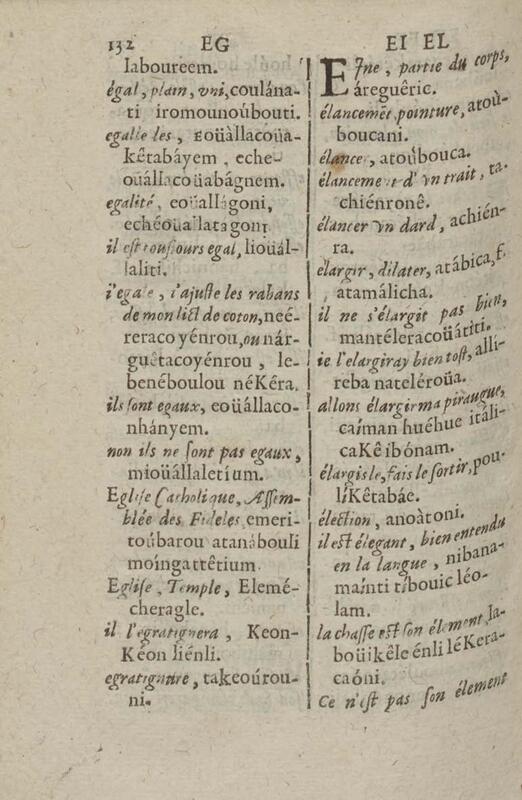 132 EG
laboureem.
égal, plain, vni, coulána-
ti iromounoúbouti.
egalle les, eoüàllacoüa-
kêtabáyem, eche-
oüállacoüabágnem.
egalité, eoüallágoni,
echéoüallatagoni
il est tousjours egal, lioüál-
laliti.
i'egale, i'ajuste les rabans
de mon lict de coton, neé-
reraco yénrou, ou nár-
guêtacoyénrou, le-
benéboulou néKéra.
ils sont egaux, eoüállaco-
nhányem.
non ils ne sont pas egaux,
mioüállaletium.
Eglise Catholique, Assem-
blée des Fideles, emeri-
toúbarou atanábouli
moíngattêtium.
Eglise, Temple, Elemé-
cheragle.
il l'egratignera, Keon-
Kéon liénli.
egratignure, takeoúrou-
ni.
EI EL
EJne, partie du corps,
áreguêric.
élancemēt, pointure, atoù-
boucani.
élance, atoúbouca.
élancement d'vn trait, ta-
chiénronê.
élancer vn dard, achién-
ra.
elargir, dilater, atábica, f.
atamálicha.
il ne s'élargit pas bien,
mantéleracoüátiti.
ie l'elargiray bien tost, alli-
reba nateléroüa.
allons élargir ma piraugue,
caíman huéhue itáli-
caKê ibónam.
élargis le, fais le sortir, pou-
liKêtabáe.
élection, anoàtoni.
il est élegant, bien entendu
en la langue, nibana-
mainti tíbouic léo-
lam.
la chasse est son élement, la-
boüikêle énli léKera-
caóni.
Ce n'est pas son élement